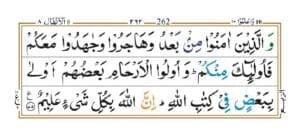 الانفال ٨ ٢٦٢ 262 واعلموا ١٠
وَ الَّذِيْنَ اٰمَنُوْا مِنْۢ بَعْدُ وَهَاجَرُوْا وَجٰهَدُوْا مَعَكُمْ
فَاُولٰٓئِكَ مِنْكُمْ ؕ وَ اُولُوا الْاَرْحَامِ بَعْضُهُمْ اَوْلٰى
بِبَعْضٍ فِيْ كِتٰبِ اللّٰهِ ؕ اِنَّ اللّٰهَ بِكُلِّ شَيْءٍ عَلِيْمٌ